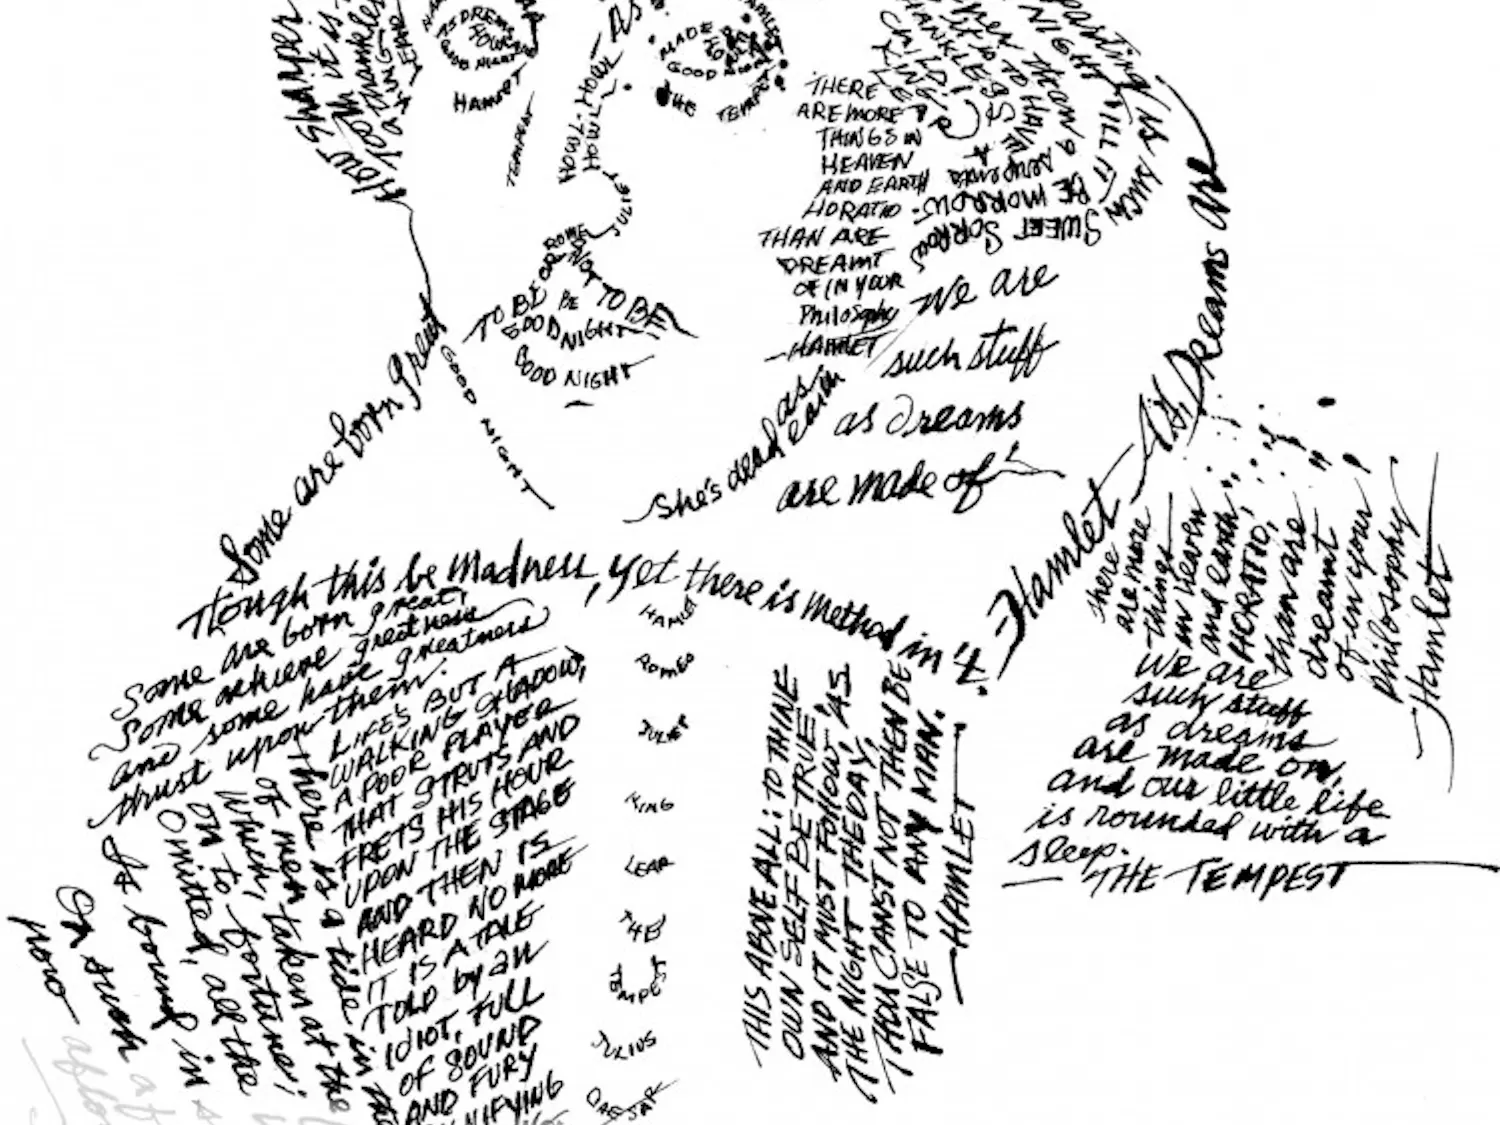 AS DREAMS
GOOD NIGHT
HAMLET
TEMPEST
HOWL-HOWL
HOWL-HOWL
JULIET
AS
MADE
GOOD NIGHT
THE TEMPEST
How sharper
it is
THERE
ARE MORE
THINGS IN
HEAVEN
AND EARTH
HORATIO
THAN ARE
DREAMT
OF IN YOUR
Philosophy
-HAMLET
parting
IS SUCH
SWEET SORROW
NIGHT TILL IT
BE MORROW.
TO HAVE A
CHILD!
ROMEO
OR NOT
TO BE
BE
TO BE
GOOD NIGHT
GOOD NIGHT
GOOD NIGHT
We are
such stuff
as dreams
are made of
She's dead as
earth
As Dreams are
Some are born great
Though this be Madness, yet there is Method in't.
-Hamlet
Some are born great,
Some achieve greatness
and some have greatness
thrust upon them.
LIFE'S BUT A
WALKING SHADOW,
A POOR PLAYER
THAT STRUTS AND
FRETS HIS HOUR
UPON THE STAGE
AND THEN IS
HEARD NO MORE
IT IS A TALE
TOLD by an
idiot, FULL
OF SOUND
AND FURY
There is a tide in the
of men taken at the
which,
on to fortune;
Omitted, all the
Is bound in
On such a
now
HAMLET
ROMEO
JULIET
KING
LEAR
THE
TEMPEST
JULIUS
CAESAR
THIS ABOVE ALL: TO THINE
OWN SELF BE TRUE,
AND IT MUST FOLLOW, AS
THE NIGHT THE DAY,
THOU CANST NOT THEN BE
FALSE TO ANY MAN.
-HAMLET
there
are more
things
in heaven
and earth,
HORATIO,
than are
dreamt
of in your
philosophy
-Hamlet
We are
such stuff
as dreams
are made on,
and our little life
is rounded with a
sleep.
-THE TEMPEST